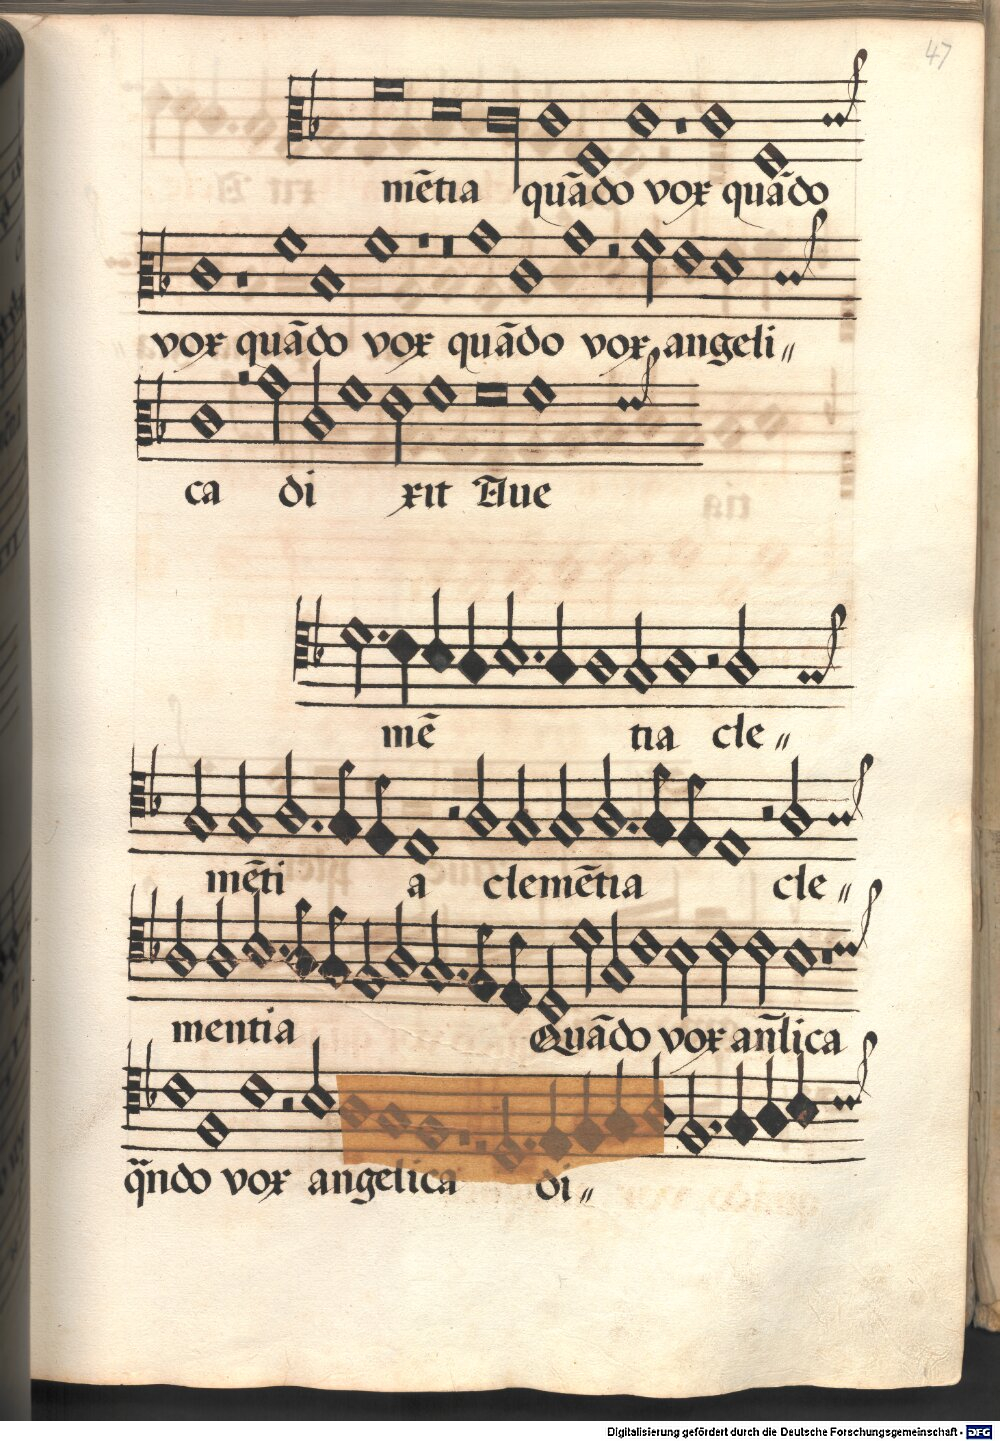 47
mẽtia quãdo vox quãdo
vox quãdo vox quãdo vox angeli〃
ca di xit Aue
mẽ tia cle〃
mẽti a clemẽtia cle〃
mentia Quãdo vox añlica
q̃ndo vox angelica di〃
Digitalisierung gefördert durch die Deutsche Forschungsgemeinschaft - DFG